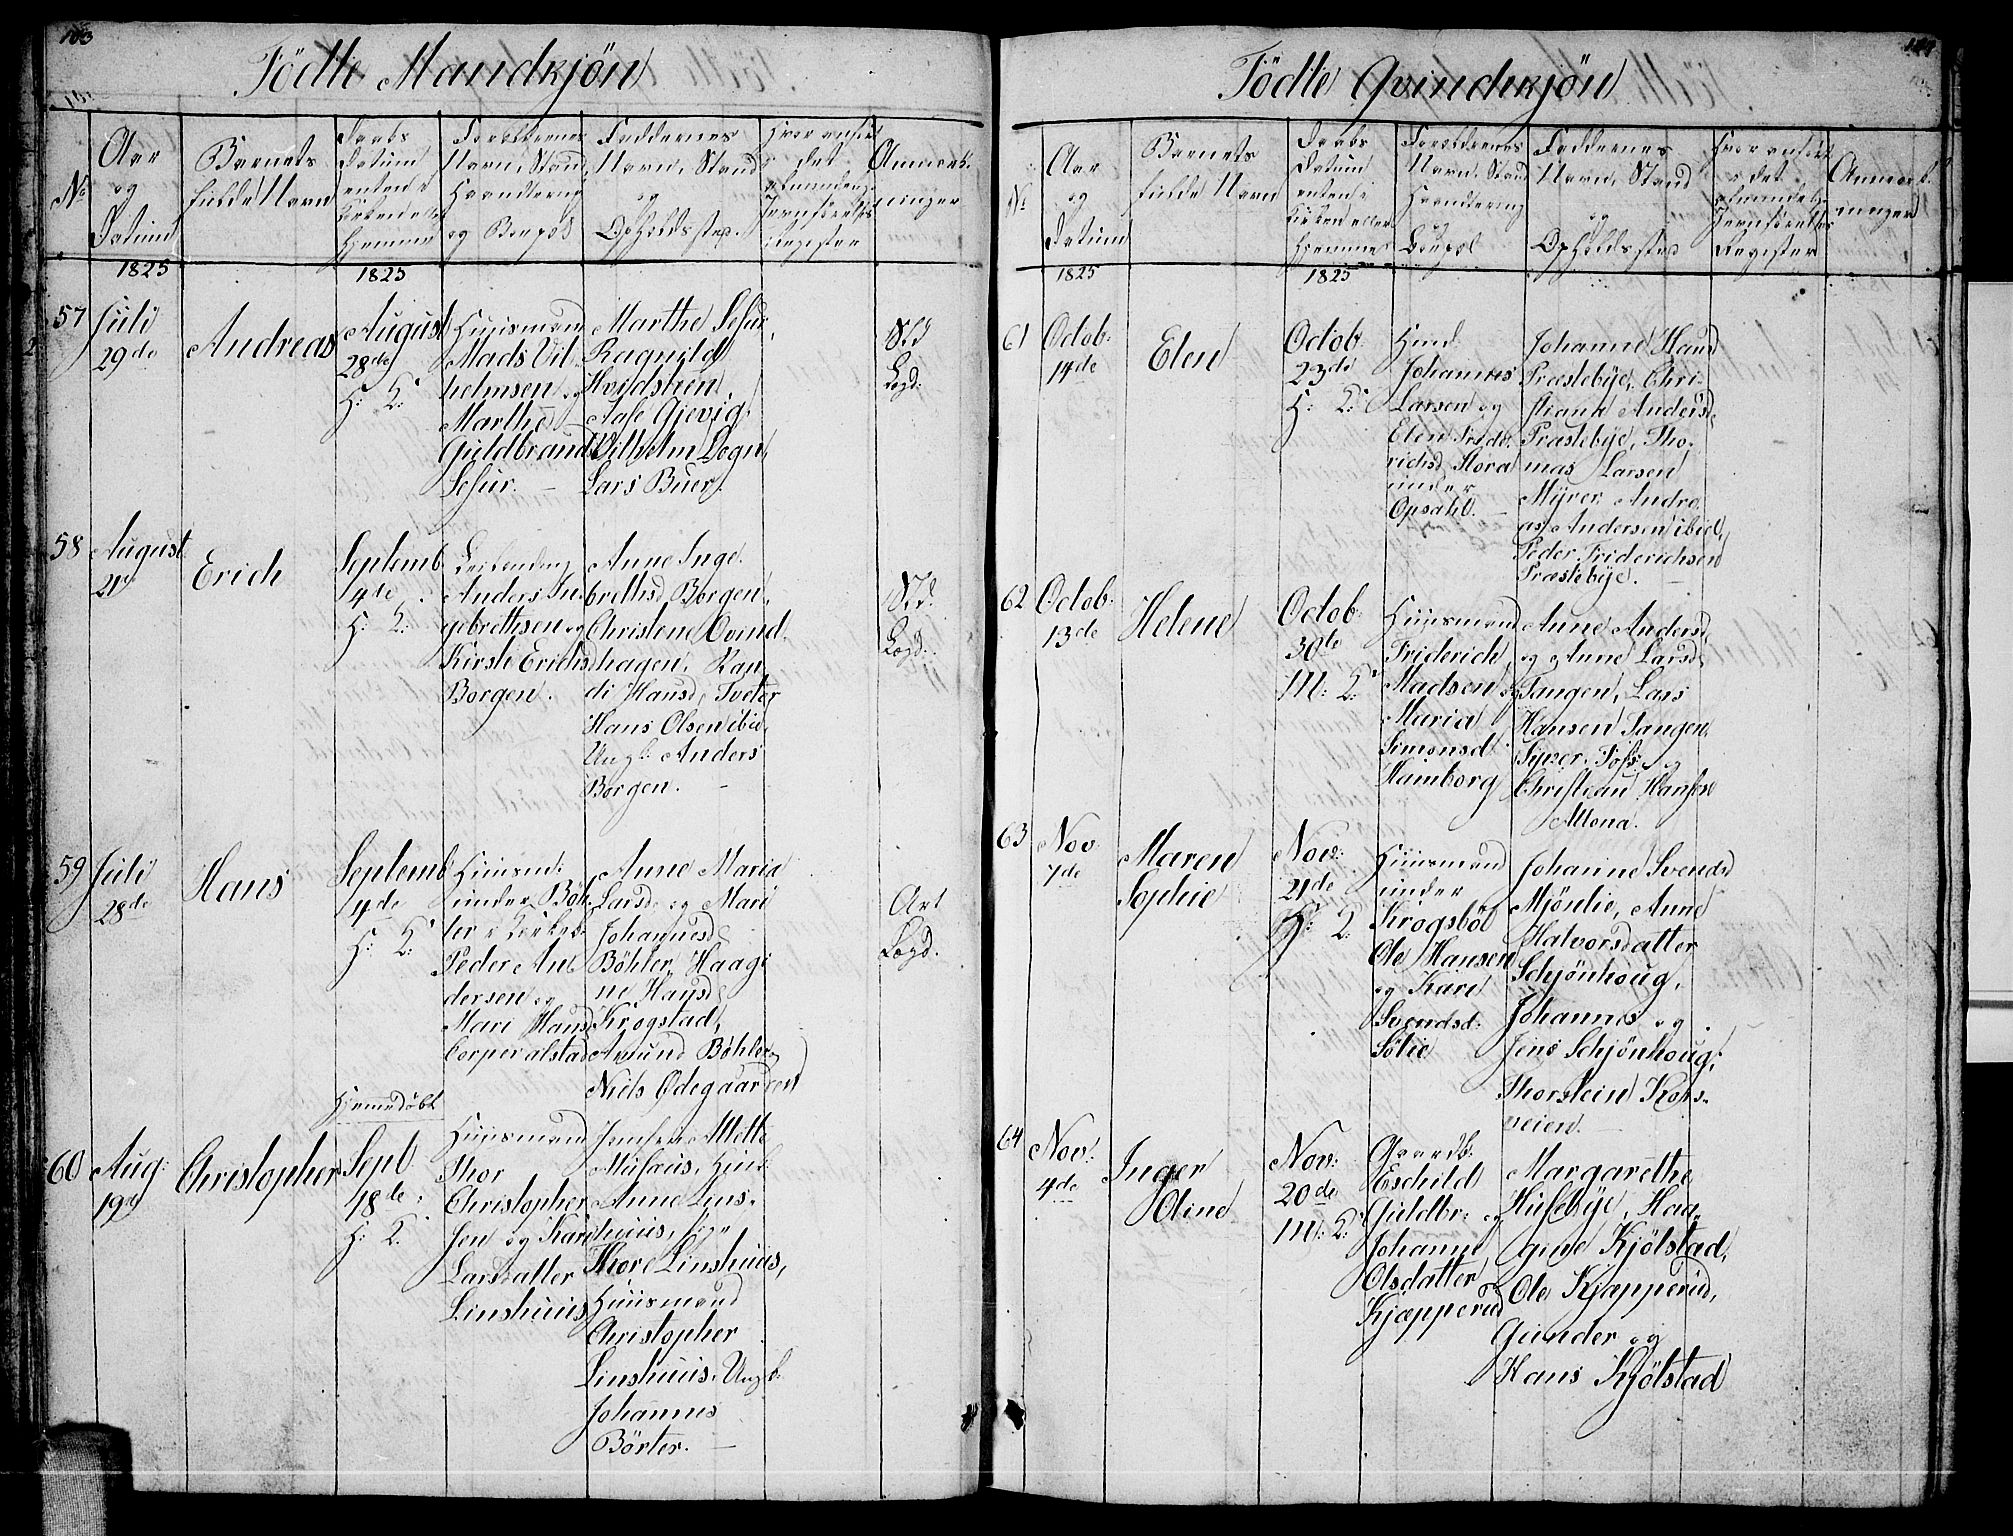 103
Födte Mandkjön
No
Aar
og
Datum
Barnets
fulde Navn
Daabs
Datum
enten i
Kirken eller
Hjemme
Forældrenes
Navn, Stand
Haandtering
og Bopæl
Faddernes
Navn, Stand
og
Opholdssted
Hvor anført
i det
almindelige
Jevnførelses
Register
Anmærk-
ninger
1825
1825
57
Juli
29de
Andreas
August
28de
H: K:
Huusmand
Mads Vil-
helmsen og
Marthe
Guldbrands
Marthe
Ragnild
Hvidsteen,
Aase Gjevig,
Vilhelm Dogn
Lars Buer.
Lægd:
58
August
21
Erich
Septemb
4de
H: K:
Anders In-
gebrethsen og
Kirsti Erichsd
Borgen.
Anne Inge-
brethsd Borgen,
Christene Qvind-
hagen, Ran-
di Hansd, Tveter
Hans Olsen ibid,
Ungk: Anders
Borgen.
Lægd:
59
Juli
28de
Hans
Septemb
4de
H: K:
Huusmd:
under Böh-
ler
Peder An-
dersen og
Mari Hansd
Corperalstad
Anne Maria
Larsd, og Mari
Johannesd
Böhler, Haagi-
ne Hansd
Krogstad,
Amund Bøhler
Niels Ødegaarden
Art
Lægd.
Hjemedöbt
60
Aug:
19de
Christopher
Sept
18de
H: K:
Huusmand
Thor
Christopher-
sen og Kari
Larsdatter
Linshuus
Jomfru Mette
Anne Lins-
huus,
Thore Linshuus,
Huusmand
Christopher
Linshuus, Ungk:
Johannes
Börter.
Födte Qvindekjön
No
Aar
og
Datum
Barnets
fulde Navn
Daabs
Datum
enten i
Kirken eller
Hjemme
Forældrenes
Navn, Stand
Haandtering
og
Bopæl
Faddernes
Navn, Stand
og
Opholdssted
Hvor anført
i det
almindelige
Jevnførelses
Register
Anmærk-
ninger
1825
1825
61
Octob:
14de
Elen
Octob
23de
H: K:
Johannes
Larsen og
Elen Fride-
richsd Stora
under
Opsahl.
Johanne Hansd
Præstebye, Chri-
stiane Andersd,
Præstebye, Tho-
mas Larsen
Myrer, Andre-
as Andersen ibid,
Peder Friderichsen
Præstebye.
62
Octob:
13de
Helene
Octob
30de
M: K:
Huusmand
Friderich
Madsen og
Maria
Simonsd
Hamborg
Anne Andersd,
og Anne Larsd
Tangen, Lars
Hansen Tangen
Syver Foss og
Christian Hansen
Altona.
63
Nov
7de
Maren
Sophie
Nov:
21de
H: K:
Huusmand
under
Krogsböl
Ole Hansen
og Kari
Svendsd:
Solie
Johanne Svendsd
Mjönlie, Anne
Halvorsdatter
Schjönhoug,
Johannes og
Jens Schjönhoug,
Thorstein Kors-
veien.
64
Nov:
4de
Inger
Oline
Nov:
20de
M: K:
Gaardb:
Eschild
Guldbr: og
Johanne
Olsdatter
Kjæpperud
Margarethe
Husebye, Haa-
gine Kjölstad,
Ole Kjæpperud,
Gunder og
Hans Kjölstad